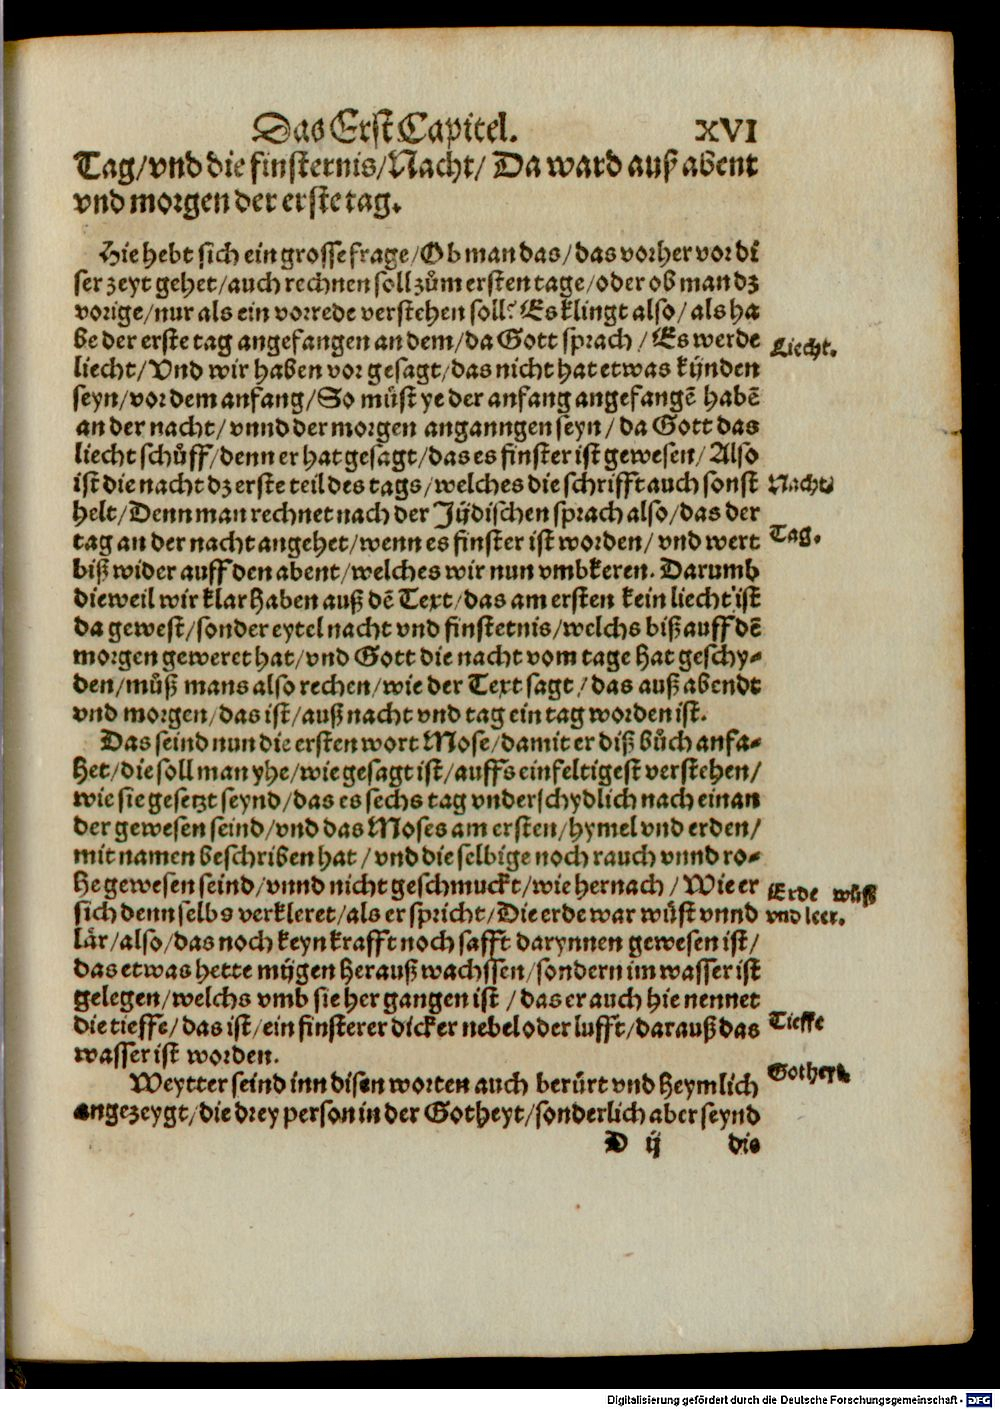 Das Erst Capitel. XVI
Tag/vnd die finsternis/Nacht/ Da ward auß abent
vnd morgen der erste tag.
Hie hebt sich ein grosse frage/Ob man das/das vorher vor di
ser zeyt gehet/auch rechnen soll zům ersten tage/oder ob man dz
vorige/nur als ein vorrede verstehen soll? Es klingt also/als ha
be der erste tag angefangen an dem/da Gott sprach/Es werde
Liecht.
liecht/Vnd wir haben vor gesagt/das nicht hat etwas kÿnden
seyn/vor dem anfang/So můst ye der anfang angefangẽ habẽ
an der nacht/vnnd der morgen anganngen seyn/da Gott das
liecht schůff/denn er hat gesagt/das es finster ist gewesen/Also
ist die nacht dz erste teil des tags/welches die schrifft auch sonst
Nacht/
helt/Denn man rechnet nach der Jÿdischen sprach also/das der
Tag.
tag an der nacht angehet/wenn es finster ist worden/vnd wert
biß wider auff den abent/welches wir nun vmbkeren. Darumb
dieweil wir klar haben auß dẽ Text/das am ersten kein liecht ist
da gewest/sonder eytel nacht vnd finstetnis/welchs biß auff dẽ
morgen geweret hat/vnd Gott die nacht vom tage hat geschy-
den/můß mans also rechen/wie der Text sagt/das auß abendt
vnd morgen/das ist/auß nacht vnd tag ein tag worden ist.
Das seind nun die ersten wort Mose/damit er diß bůch anfa-
het/die soll man yhe/wie gesagt ist/auffs einfeltigest verstehen/
wie sie gesetzt seynd/das es sechs tag vnderschydlich nach einan
der gewesen seind/vnd das Moses am ersten/hymel vnd erden/
mit namen beschriben hat/vnd die selbige noch rauch vnnd ro-
he gewesen seind/vnnd nicht geschmuckt/wie hernach/Wie er
Erde wůst
sich denn selbs verkleret/als er spricht/Die erde war wůst vnnd
vnd leer.
lår/also/das noch keyn krafft noch safft darynnen gewesen ist/
das etwas hette mÿgen herauß wachssen/sondern im wasser ist
gelegen/welchs vmb sie her gangen ist/das er auch hie nennet
die tieffe/das ist/ein finsterer dicker nebel oder lufft/darauß das
Tieffe
wasser ist worden.
Weytter seind inn disen worten auch berůrt vnd heymlich
Gotheyt.
angezeygt/die drey person in der Gotheyt/sonderlich aber seynd
D ij die
Digitalisierung gefördert durch die Deutsche Forschungsgemeinschaft - DFG